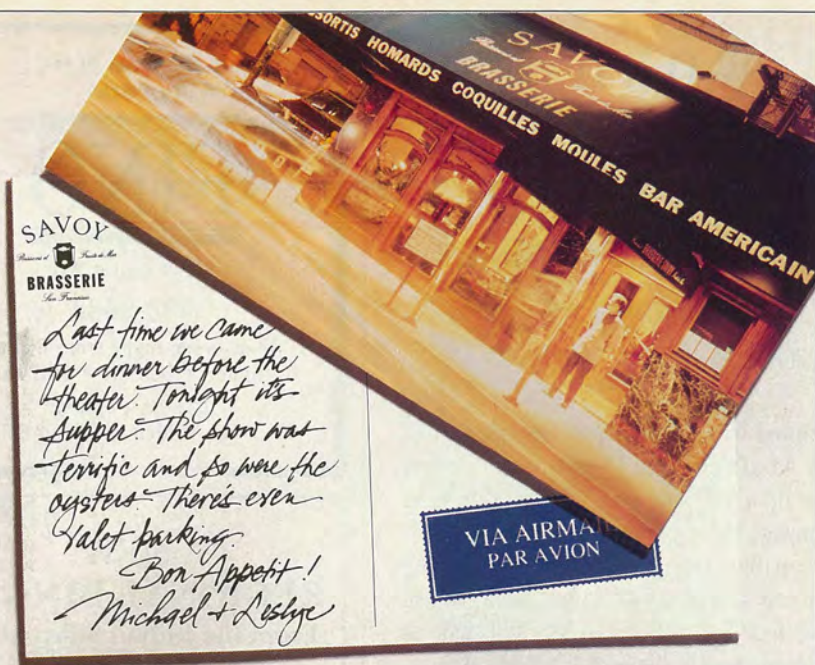 SORTIS HOMARDS COQUILLES MOULES BAR AMERICAIN
SAVOY
Poissons et Fruits de Mer
BRASSERIE
SAVOY
Poissons et Fruits de Mer
BRASSERIE
San Francisco
Last time we came
for dinner before the
theater. Tonight it's
supper. The show was
terrific and so were the
oysters. There's even
valet parking.
Bon Appetit!
Michael + Leslye
VIA AIRMAI
PAR AVION